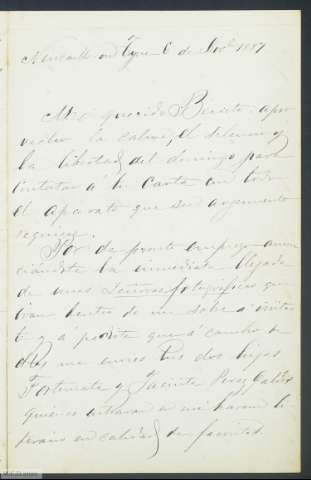 Newcastle on Tyne 6 de Nov.e 1887
Mi querido Benito: apro
vecho la calma, el silencio y
la libertad del domingo para
contestar á tu carta con todo
el aparato que su argumento
requiere.
Por de pronto empiezo anun
ciandote la inmediata llegada
de unas Señoras fotográficas que
irán dentro de un sobre á visitar
te y á pedirte que á cambio de
ellas me envies tus dos hijas
Fortunata y Jacinta Perez Galdós
quienes entrarán en mi harem li
terario en calidad de favoritas.